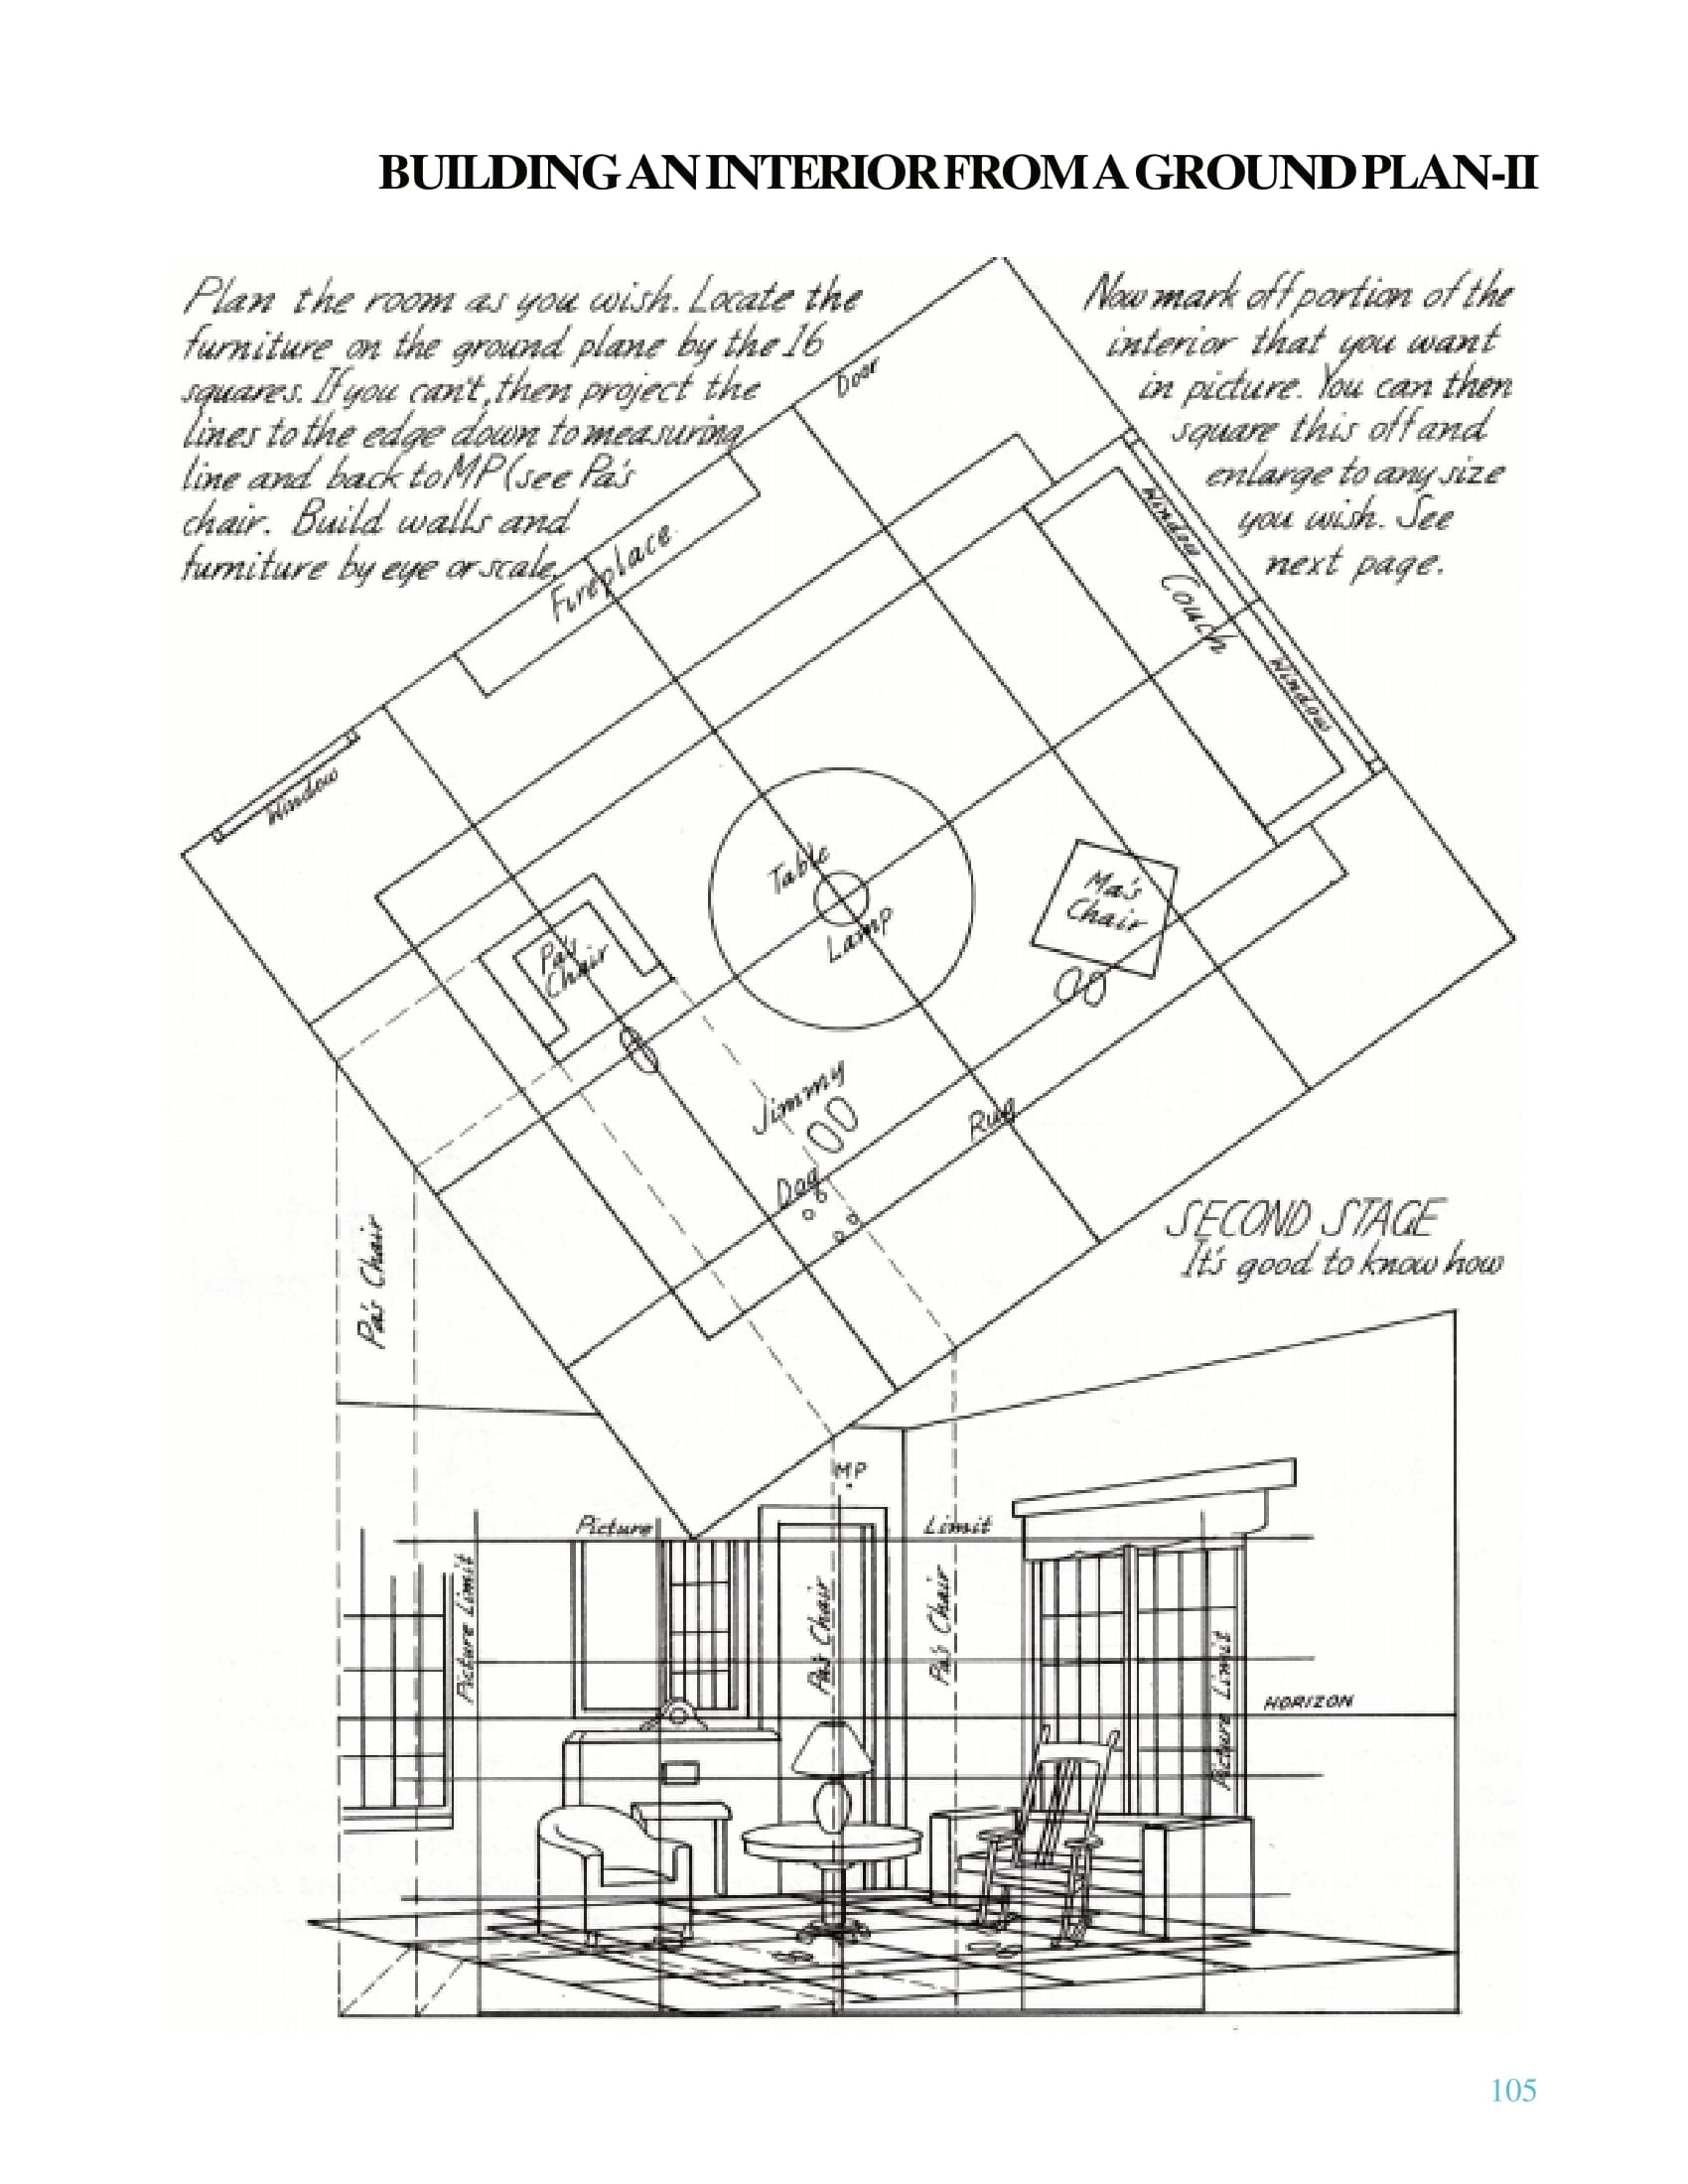 BUILDING AN INTERIOR FROM A GROUND PLAN-II
Plan the room as you wish. Locate the
furniture on the ground plane by the 16
squares. If you can't, then project the
lines to the edge down to measuring
line and back to MP (see Pa's
chair. Build walls and
furniture by eye or scale.
Now mark off portion of the
interior that you want
in picture. You can then
square this off and
enlarge to any size
you wish. See
next page.
Door
Fireplace
Window
Window
Couch
Window
Table
Lamp
Pa's
Chair
Ma's
Chair
Jimmy
Dog
Rug
Pa's Chair
SECOND STAGE
It's good to know how
MP
Picture
Limit
Picture Limit
Pa's Chair
Pa's Chair
Picture Limit
HORIZON
105